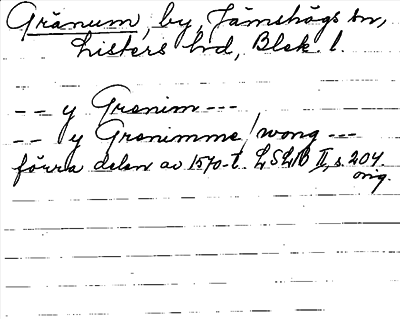 Gränum, by, Jämshögs sn,
Listers hd, Blek. l.
-- y Granim ---
-- y Granimme/wong ---
förra delen av 1570-t. LSLB II, s. 204.
orig.